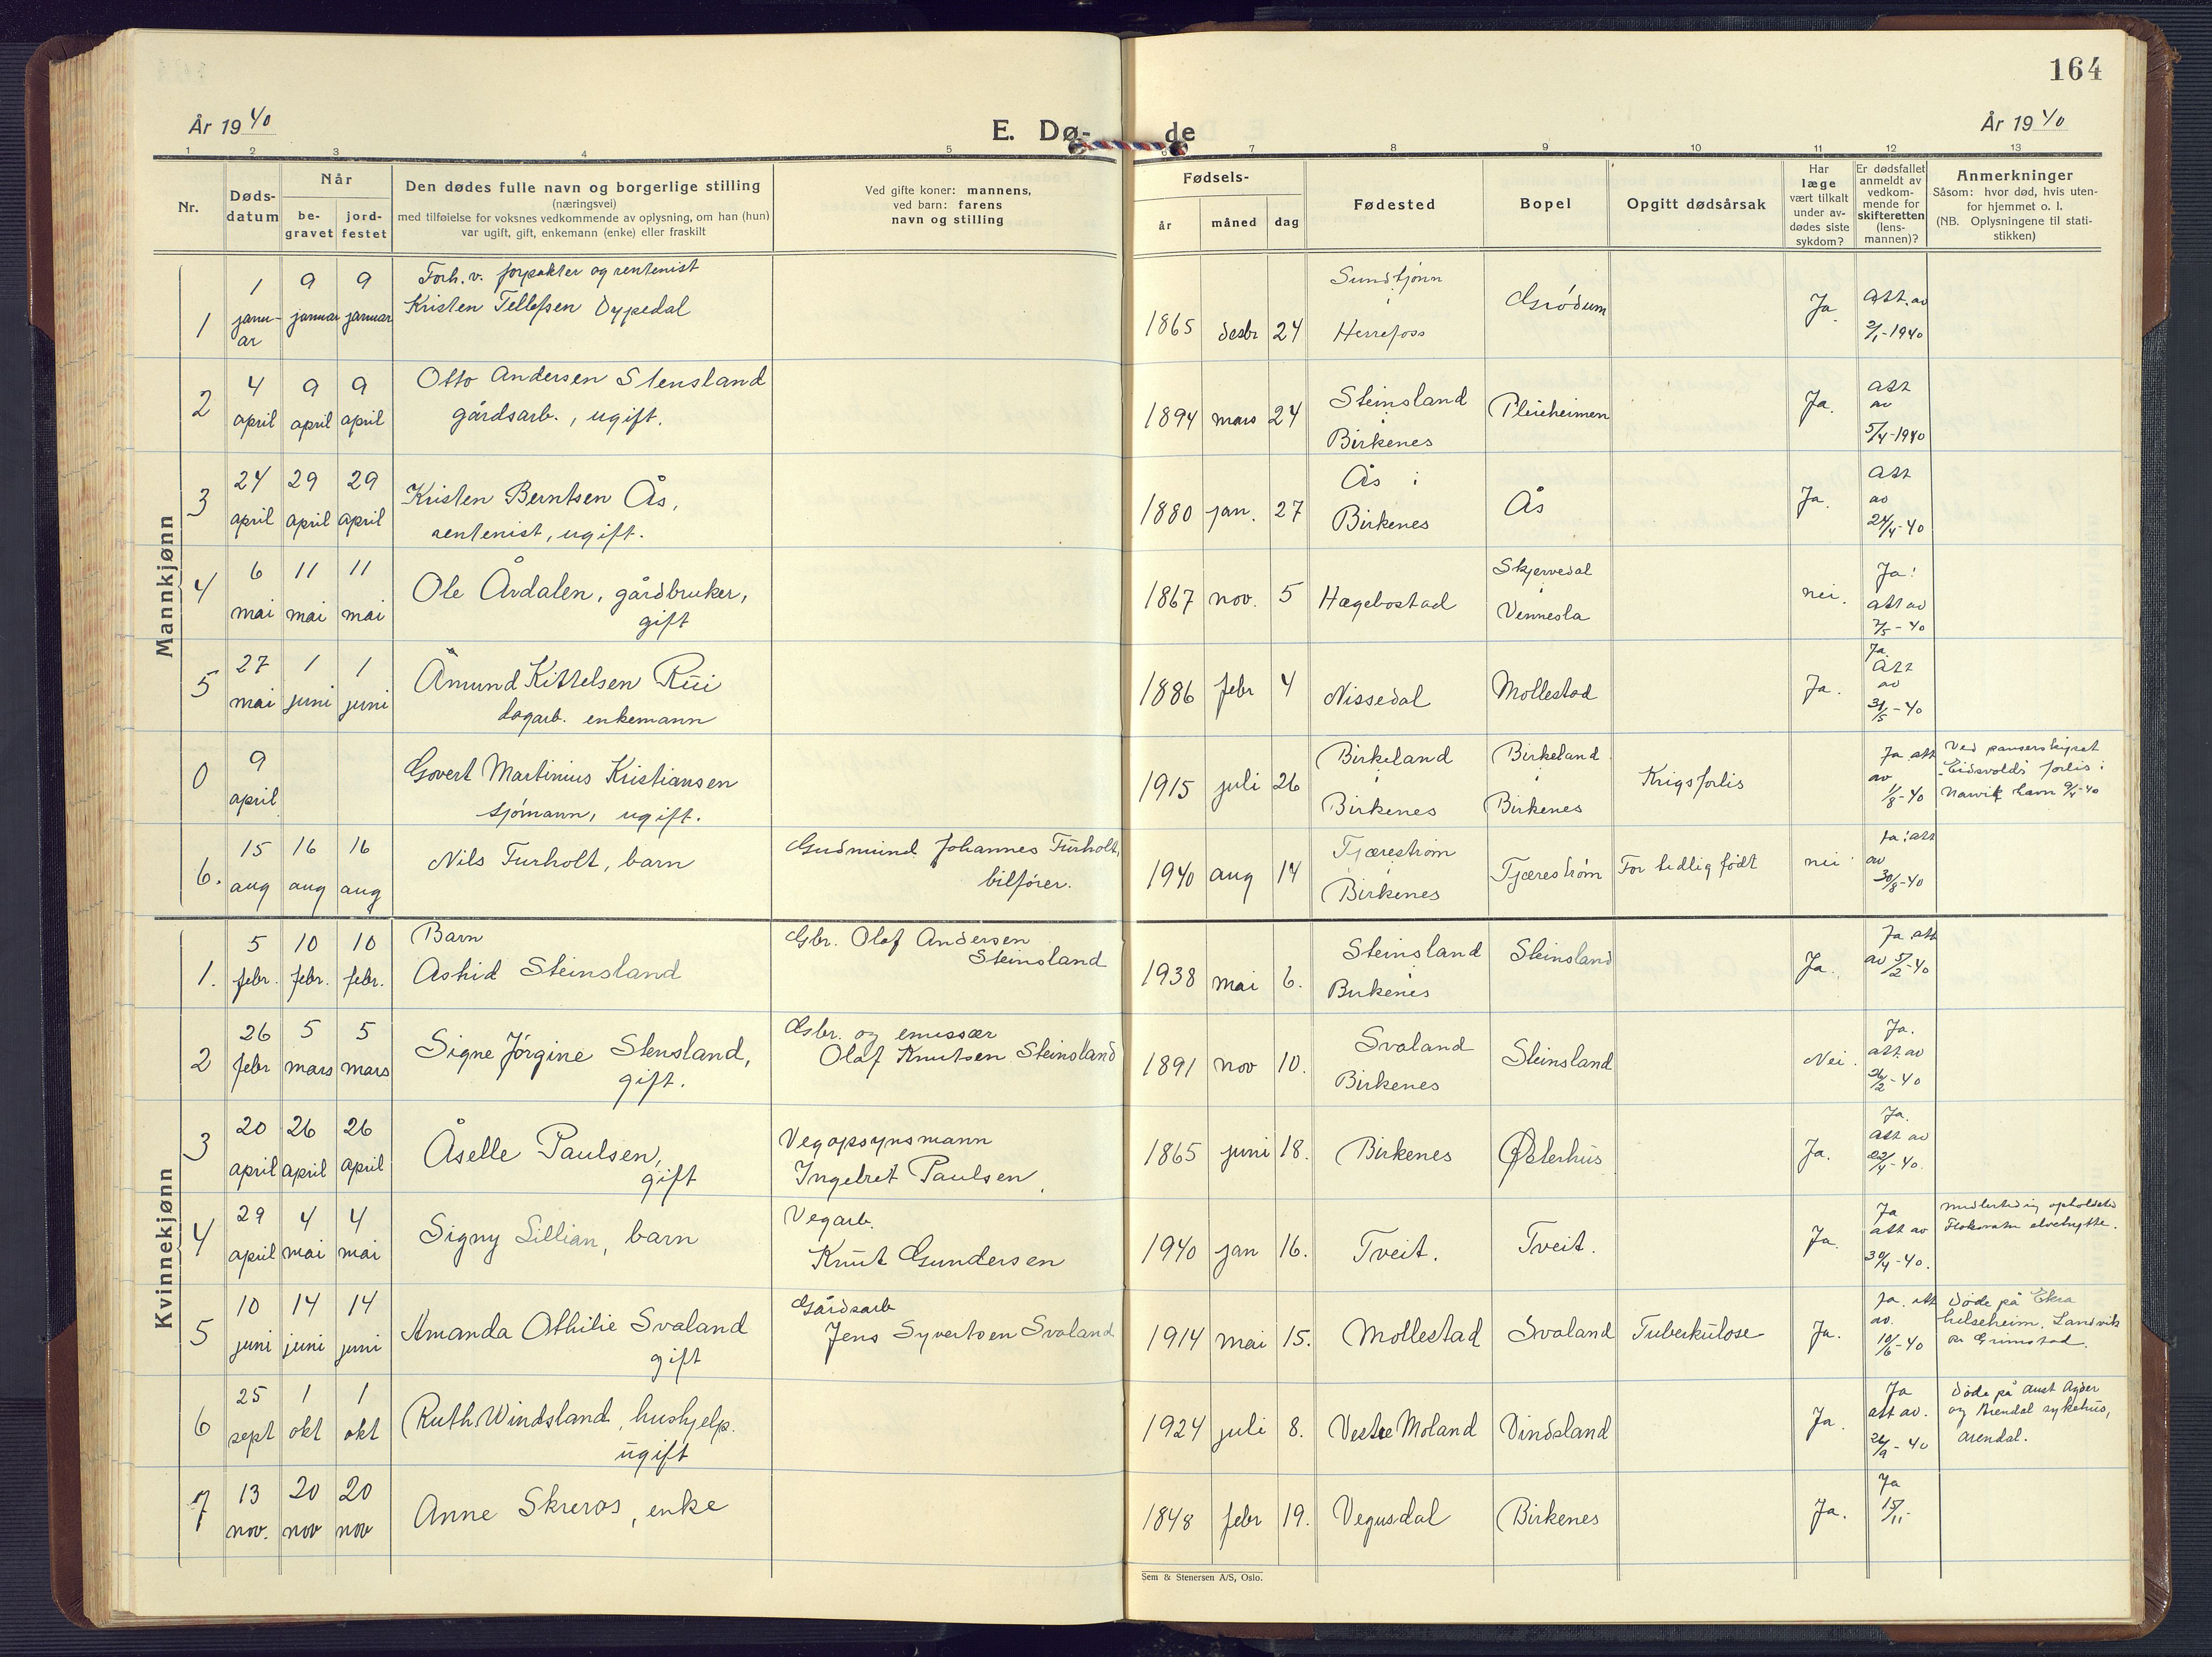 164
År 1940
E. Dø-
de
År 1940
1 2 3 4 5 6 7 8 9 10 11 12 13
Nr.
Døds-
datum
Når
be-
gravet
jord-
festet
Den dødes fulle navn og borgerlige stilling
(næringsvei)
med tilføielse for voksnes vedkommende av oplysning, om han (hun)
var ugift, gift, enkemann (enke) eller fraskilt
Ved gifte koner: mannens,
ved barn: farens
navn og stilling
Fødsels-
år måned dag
Fødested
Bopel
Opgitt dødsårsak
Har
læge
vært tilkalt
under av-
dødes siste
sykdom?
Er dødsfallet
anmeldt av
vedkom-
mende for
skifteretten
(lens-
mannen)?
Anmerkninger
Såsom: hvor død, hvis uten-
for hjemmet o. l.
(NB. Oplysningene til stati-
stikken)
Mannkjønn
1
1 9 9
janu-
ar
januar januar
Forh. v. forpakter og rentenist
Kristen Tellefsen Dypedal
1865 desbr 24
Sundtjønn
i
Herrefoss
Grødum
Ja
Att. av
2/1-1940
2
4 9 9
april april april
Otto Andersen Stensland
gårdsarb., ugift.
1894 mars 24
Steinsland
i
Birkenes
Pleieheimen
Ja.
Att
av
5/4-1940
3
24 29 29
april april april
Kristen Berntsen Ås,
rentenist, ugift.
1880 jan. 27
Ås i
Birkenes
Ås
Ja.
Att
av
24/4-40
4
6 11 11
mai mai mai
Ole Årdalen, gårdbruker,
gift
1867 nov. 5
Hægebostad
Skjervedal
i
Vennesla
nei.
Ja!
att av
7/5-40
5
27 1 1
mai juni juni
Åmund Kittelsen Rui
dagarb. enkemann
1886 febr 4
Nissedal
Mollestad
Ja.
Ja.
Att
av
31/5-40
0
9
april
Govert Martinius Kristiansen
sjømann, ugift.
1915 juli 26
Birkeland
i
Birkenes
Birkeland
i
Birkenes
Krigsforlis
Ja att
av
1/8-40
Ved panserskipet
"Eidsvolds" forlis i
Narvik havn 9/4-40
6.
15 16 16
aug aug aug
Nils Furholt, barn
Gudmund Johannes Furholt,
bilfører.
1940 aug 14
Tjærestrøm
i
Birkenes
Tjærestrøm
For tidlig født
nei
Ja! att
av
30/8-40
Kvinnekjønn
1.
5 10 10
febr. febr. febr.
Barn
Astrid Steinsland
Gbr. Olaf Andersen
Steinsland
1938 mai 6.
Steinsland
i
Birkenes
Steinsland
Ja.
Ja att
av 5/2-40
2
26 5 5
febr mars mars
Signe Jørgine Stensland,
gift.
Gbr. og emissær
Olaf Knutsen Steinsland
1891 nov 10.
Svaland
Birkenes
Steinsland
Nei.
Ja.
att av
26/2-40
3
20 26 26
april april april
Åselle Paulsen,
gift
Vegopsynsmann
Ingebret Paulsen
1865 juni 18.
Birkenes
Østerhus
Ja.
Ja.
att av
22/4-40.
4
29 4 4
april mai mai
Signy Lillian, barn
Vegarb.
Knut Gundersen
1940 jan 16.
Tveit.
Tveit.
Ja.
Ja
att av
30/4-40.
midlertidig opholdsted
5
10 14 14
juni juni juni
Amanda Othilie Svaland
gift
Gårdsarb
Jens Syvertsen Svaland
1914 mai 15.
Mollestad
Svaland
Tuberkulose
Ja.
Ja. att
av.
10/6-40
Døde på Ekra
helseheim, Landvik
pr Grimstad.
6
25 1 1
sept okt okt
Ruth Windsland, hushjelp.
ugift
1924 juli 8.
Vestre Moland
Vindsland
Ja.
Ja
att av.
26/9-40
Døde på Aust Agder
og Arendal sykehus,
Arendal.
7
13 20 20
nov. nov nov
Anne Skreros, enke
1848 febr 19.
Vegusdal
Birkenes
Ja.
Ja
15/11-
Sem & Stenersen A/S, Oslo.